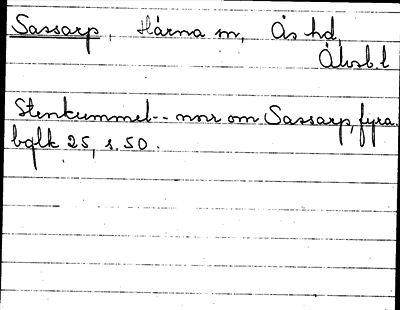 Sassarp, Hårna sn, Ås hd,
Älvsb. l
Stenkummel -- norr om Sassarp, fyra.
bglk 25, s. 50.